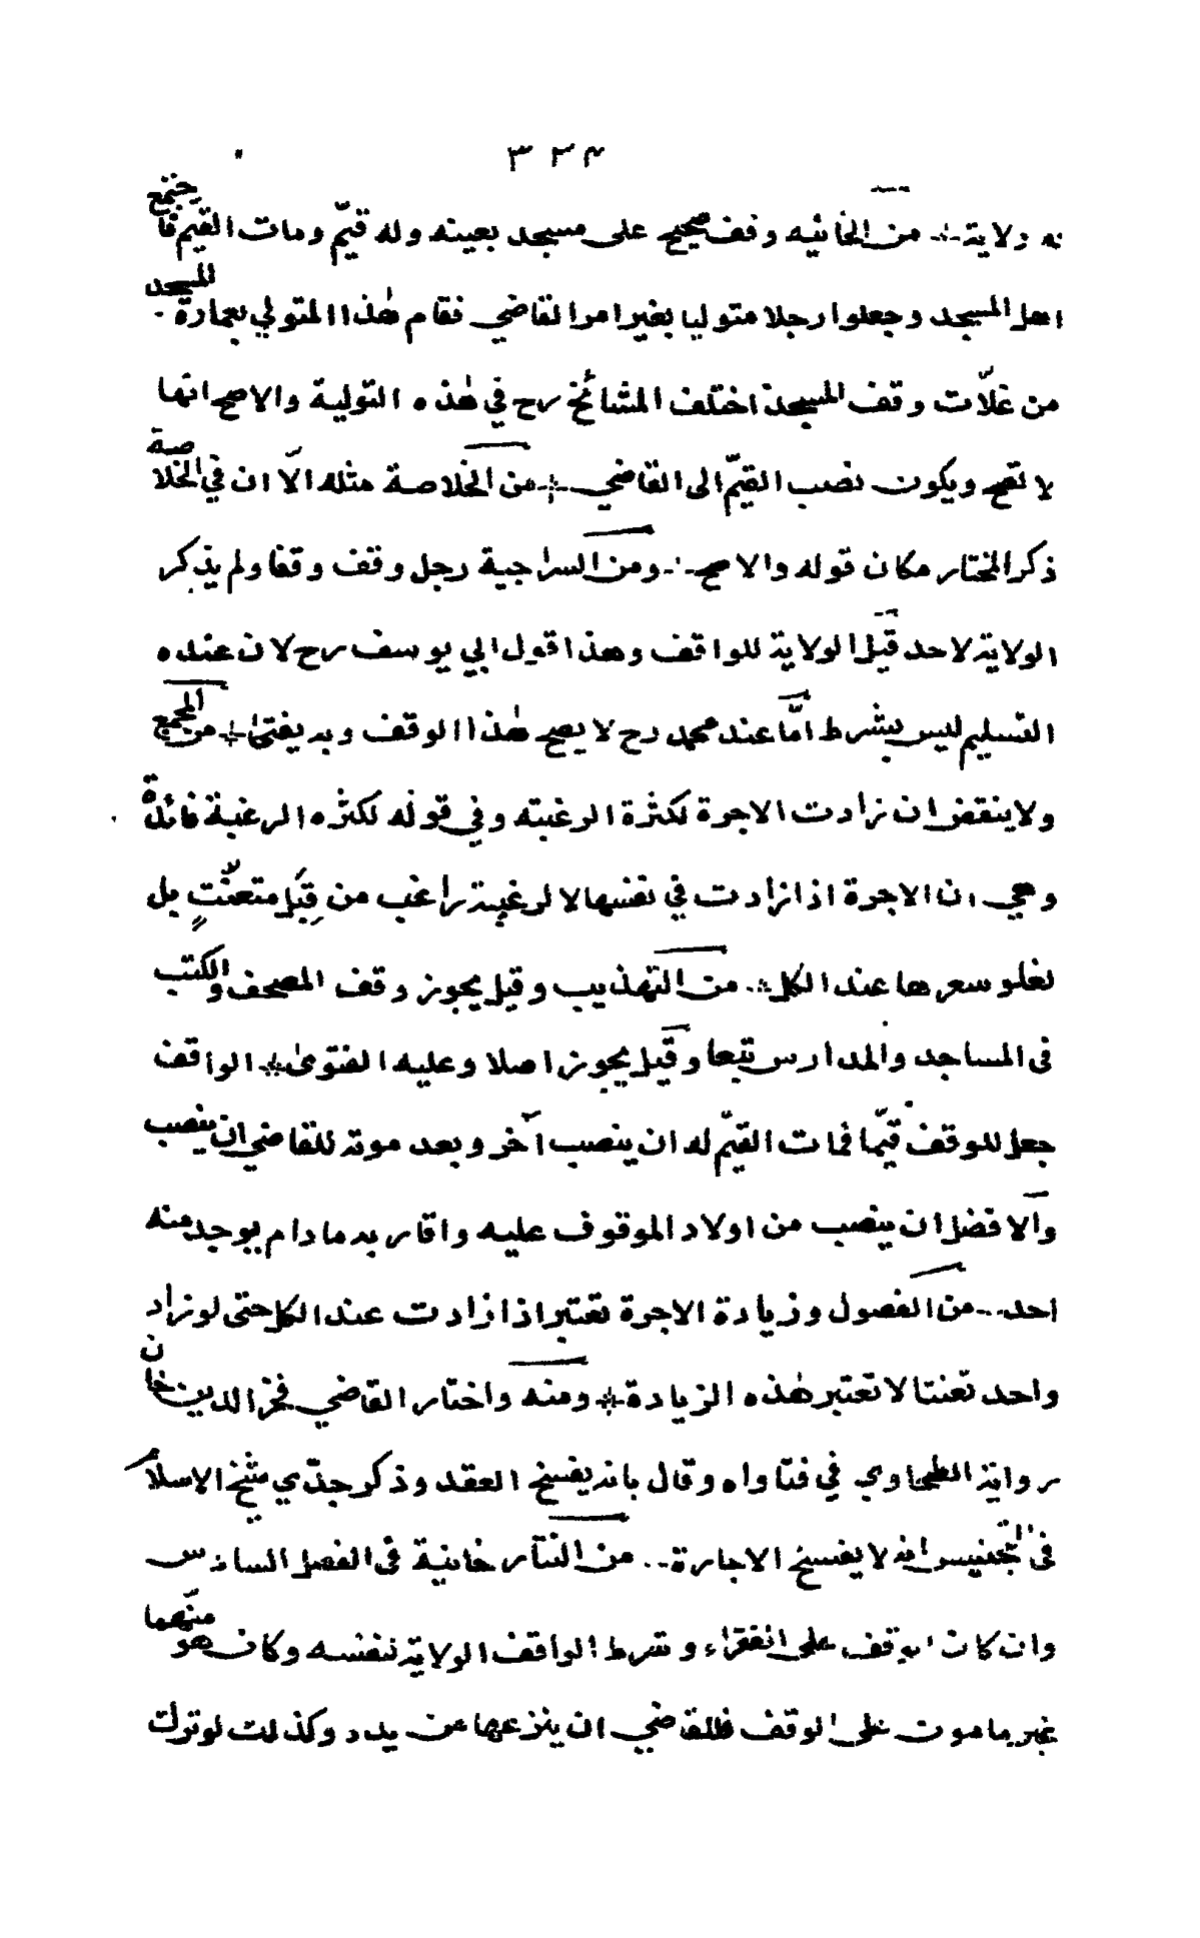 ٣٣٤
له ولاية من الخانيه وقف صحيح على مسجد بعينه وله قيّم ومات القيم فاجتمع
اهل المسجد وجعلوا رجلا متوليا بغير امر القاضي فقام هٰذا المتولي بعمارة المسجد
من غلّات وقف المسجد اختلف المشائخ رح في هٰذه التولية والاصح انها
لا تصح ويكون نصب القيّم الى القاضي من الخلاصة مثله الّا ان في الخلاصة
ذكر المختار مكان قوله والاصح ومن السراجية رجل وقف وقفا ولم يذكر
الولاية لاحد قيل الولاية للواقف وهذا قول ابي يوسف رح لان عنده
التسليم ليس بشرط امّا عند محمد رح لا يصح هٰذا الوقف وبه يفتىٰ من المجمع
ولا ينقض ان زادت الاجرة لكثرة الرغبته وفي قوله لكثره الرغبة فائدة
وهي ان الاجرة اذا زادت في نفسها لا لرغبة راغب من قِبَل متعنّتٍ بل
لغلو سعرها عند الكل من التهذيب وقيل يجوز وقف المصحف والكتب
فى المساجد والمدارس تبعا وقيل يجوز اصلا وعليه الفتوىٰ الواقف
جعل للوقف قيّما فمات القيّم له ان ينصب آخر وبعد موته للقاضي ان ينصب
والافضل ان ينصب من اولاد الموقوف عليه واقاربه مادام يوجد منه
احد من الفصول وزيادة الاجرة تعتبر اذا زادت عند الكل حتى لو زاد
واحد تعنتا لا تعتبر هٰذه الزيادة ومنه واختار القاضي فخر الدين خان
رواية الطحاوي في فتاواه وقال بانه يفسخ العقد وذكر جدّي شيخ الاسلام
فى التجنيس انه لا يفسخ الاجارة من التتارخانية فى الفصل السادس
وان كان الوقف على الفقراء وشرط الواقف الولاية لنفسه وكان هو متّهما
غير مامون على الوقف فللقاضي ان ينزعها من يده وكذلك لو ترك